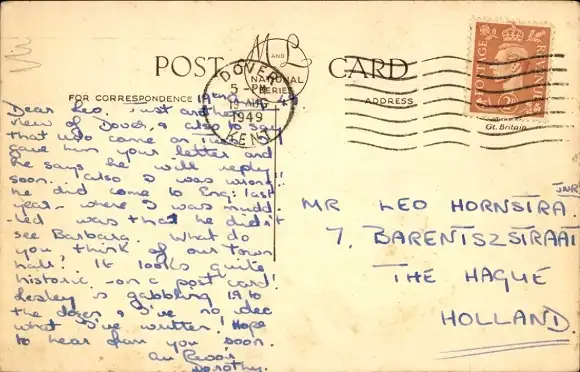 M AND L
NATIONAL
SERIES
POST CARD
FOR CORRESPONDENCE
ADDRESS
DOVER
5 - PM
19 AUG
1949
KENT
POSTAGE REVENUE
Gt. Britain.
Eng. 49
Dear Leo. Just another
view of Dover, & also to say
that
gave him your letter and
he says he will reply
soon. I also I was wrong!
he did come to Eng: last
year - where I was mudd
-led was that he didn't
see Barbara. What do
you think of our town
hall? It looks quite
historic - on a post card!
Lesley is gabbling 19 to
the dozen & I've no idea
what I've written! Hope
to hear from you soon.
au Revoir
Dorothy.
MR LEO HORNSTRA JNR
7, BARENTSZSTRAAT
THE HAGUE
HOLLAND.